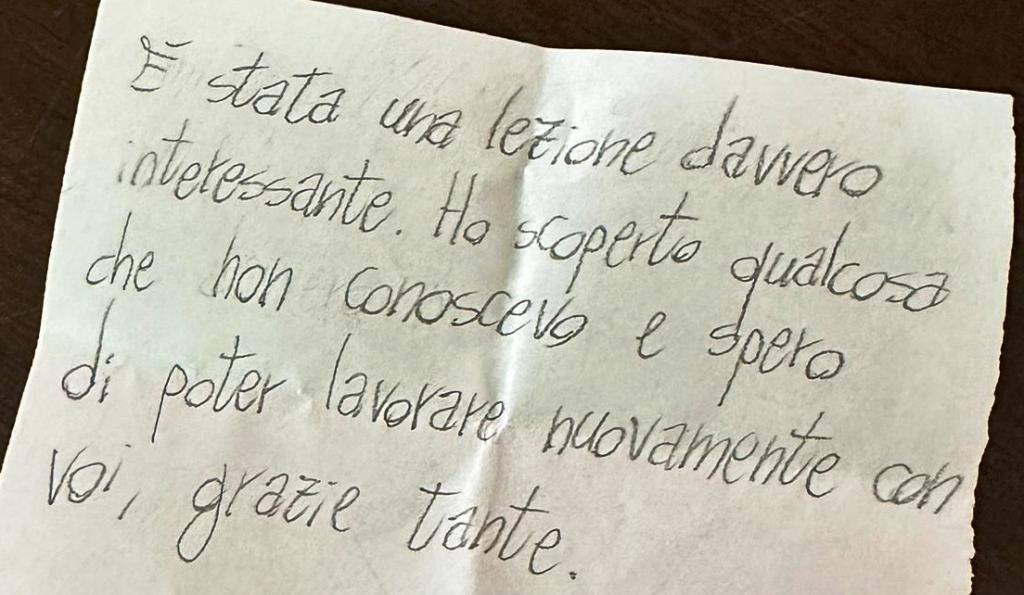 È stata una lezione davvero
interessante. Ho scoperto qualcosa
che non conoscevo e spero
di poter lavorare nuovamente con
voi, grazie tante.